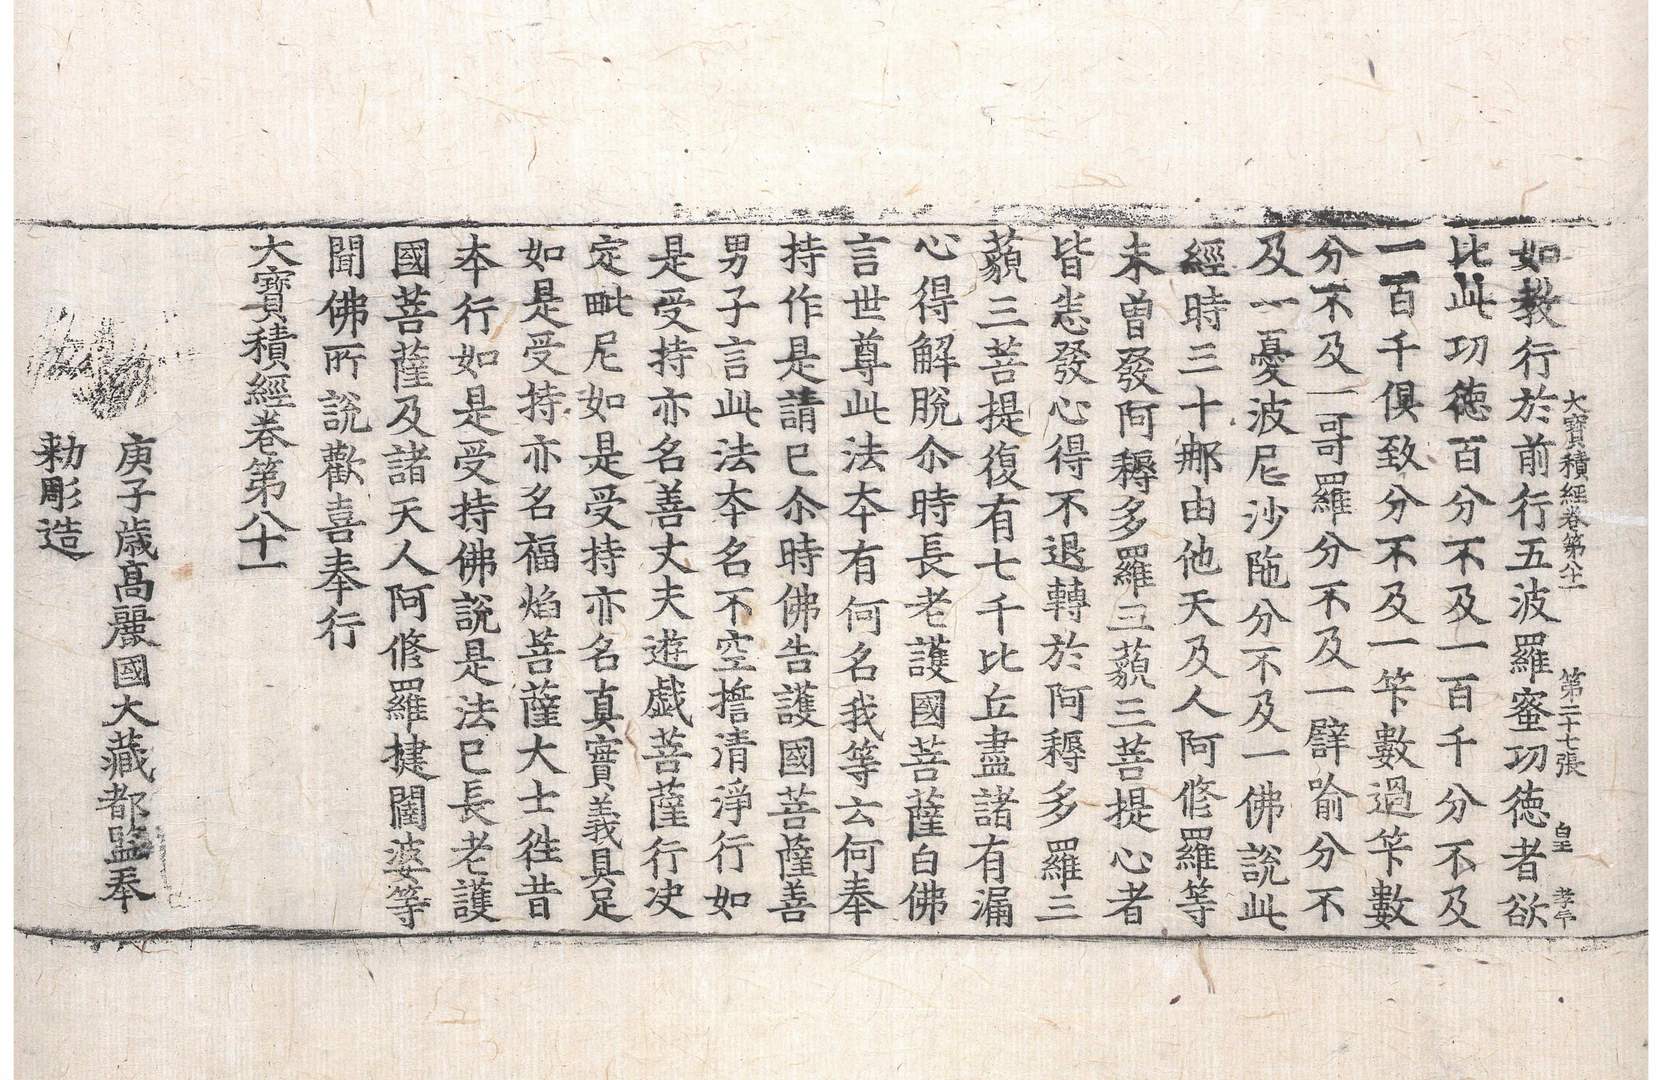 大寶積經卷第八十一 第二十七張 皇 孝年
如教行於前行五波羅蜜功德者欲
比此功德百分不及一百千分不及
一百千俱致分不及一笇數過笇數
分不及一哥羅分不及一譬喻分不
及一憂波尼沙陁分不及一佛說此
經時三十那由他天及人阿脩羅等
未曾發阿耨多羅三藐三菩提心者
皆悉發心得不退轉於阿耨多羅三
藐三菩提復有七千比丘盡諸有漏
心得解脫尒時長老護國菩薩白佛
言世尊此法本有何名我等云何奉
持作是請已尒時佛告護國菩薩善
男子言此法本名不空誓清淨行如
是受持亦名善丈夫遊戱菩薩行决
定毗尼如是受持亦名真實義具足
如是受持亦名福焰菩薩大士徃昔
本行如是受持佛說是法已長老護
國菩薩及諸天人阿脩羅揵闥婆等
聞佛所說歡喜奉行
大寶積經卷第八十一
庚子歲高麗國大藏都監奉
勑彫造